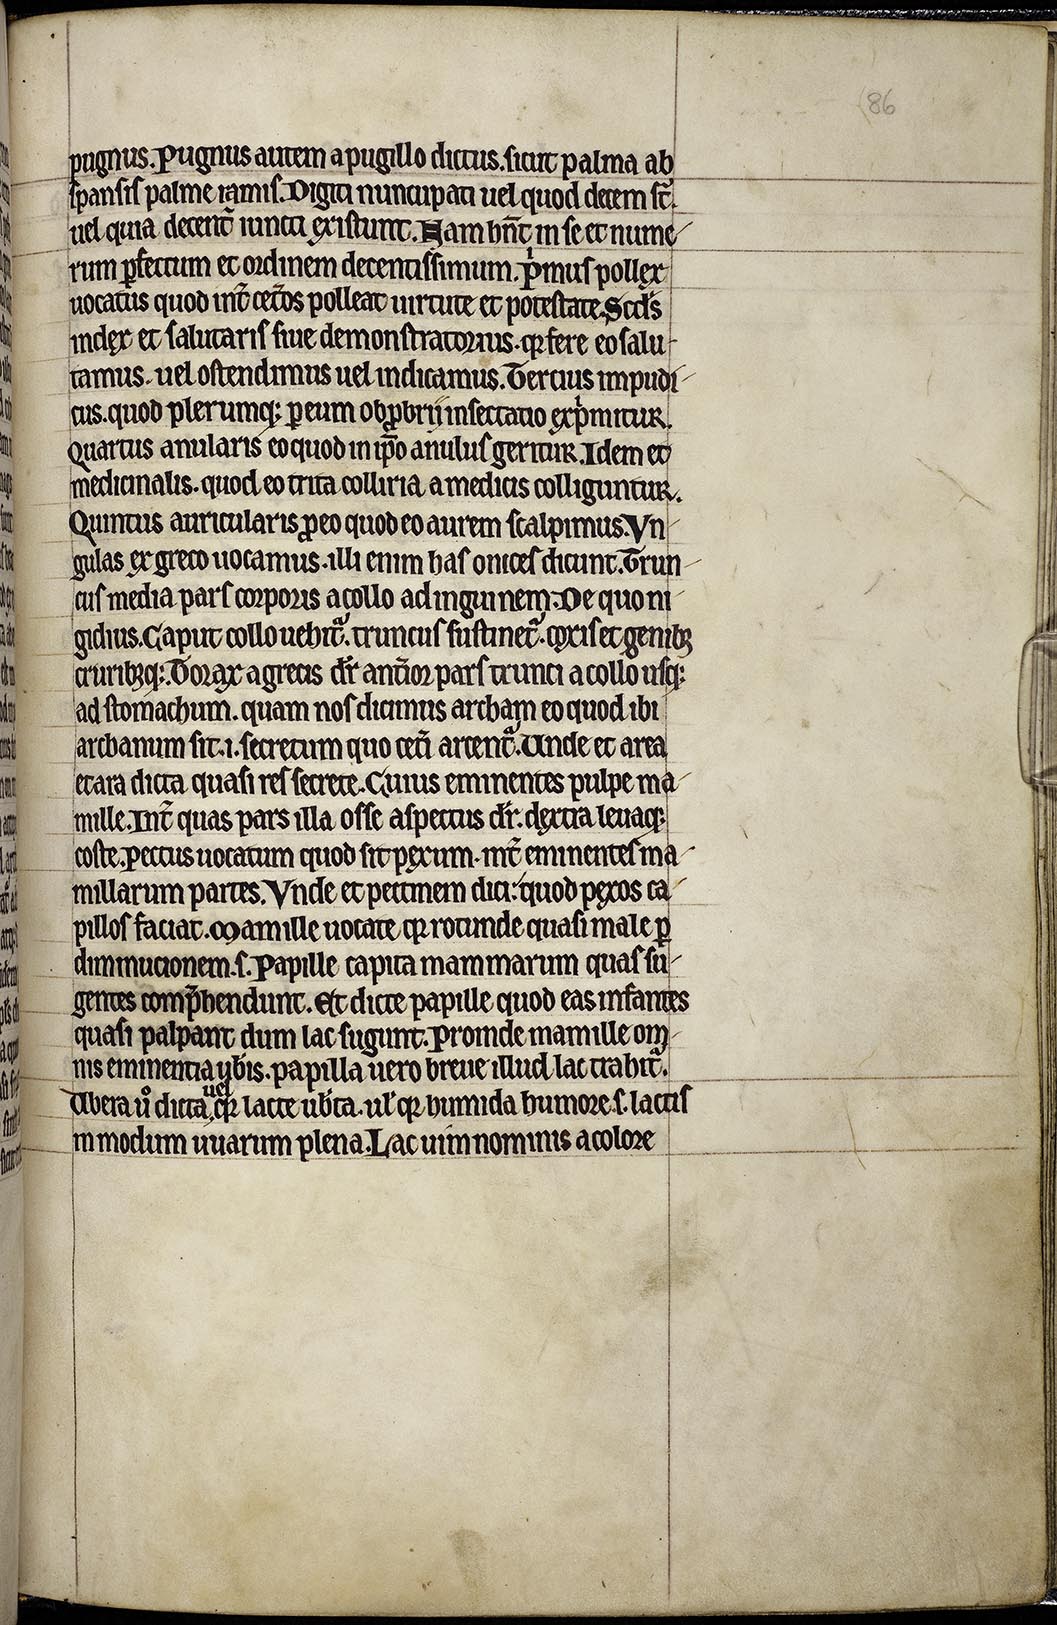 86
pugnus. Pugnus autem a pugillo dictus. sicut palma ab
spansis palme ramis. Digiti nuncupati uel quod decem st̄.
uel quia decent̄ iuncti existunt. Nam hn̄t in se et nume
rum ꝑfectum et ordinem decentissimum. pͥmus pollex
uocatus quod int̄ cet̄os polleat uirtute et potestate. Scd̄s
index et salutaris siue demonstratorius. qꝛ fere eo salu
tamus. uel ostendimus uel indicamus. Tercius impudi
cus. quod plerumqꝫ ꝑ eum obꝓbrii insectatio expͥmitur.
Quartus anularis eo quod in ip̄o anulus geritur. Idem et
medicinalis. quod eo trita colliria a medicis colliguntur.
Quintus auricularis ꝓ eo quod eo aurem scalpimus. Vn
gulas ex greco uocamus. illi enim has onices dicunt. Trun
cus media pars corporis a collo ad inguinem. De quo ni
gidius. Caput collo uehit᷑. truncus sustinet᷑. coxis et genibꝫ
cruribꝫqꝫ. Torax a grecis dr̄ ant̄ior pars trunci a collo usqꝫ
ad stomachum. quam nos dicimus archam eo quod ibi
archanum sit .i. secretum quo cet̄i arcent᷑. Unde et arca
et ara dicta quasi res secrete. Cuius eminentes pulpe ma
mille. Int̄ quas pars illa osse aspectus dr̄. dextra leuaqꝫ
coste. Pectus uocatum quod sit pexum. int̄ eminentes ma
millarum partes. Vnde et pectinem dici. quod pexos ca
pillos faciat. Mamille uocate qꝛ rotunde quasi male ꝑ
diminucionem .s. Papille capita mammarum quas su
gentes comp̄hendunt. Et dicte papille quod eas infantes
quasi palpant dum lac sugunt. Proinde mamille om
nis eminentia ub̄is. papilla uero breue illud lac trahit᷑.
Ubera ů dicta uel qꝛ lacte ub̄ta. ul̄ qꝛ humida humore .s. lactis
in modum uuarum plena. Lac uim nominis a colore